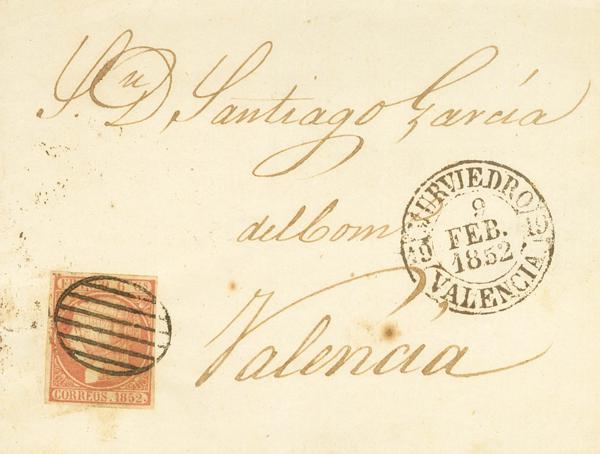 Sr. D. Santiago García
del Com
Valencia
MURVIEDRO
19 9 19
FEB.
1852
VALENCIA
CORREOS. 1852.